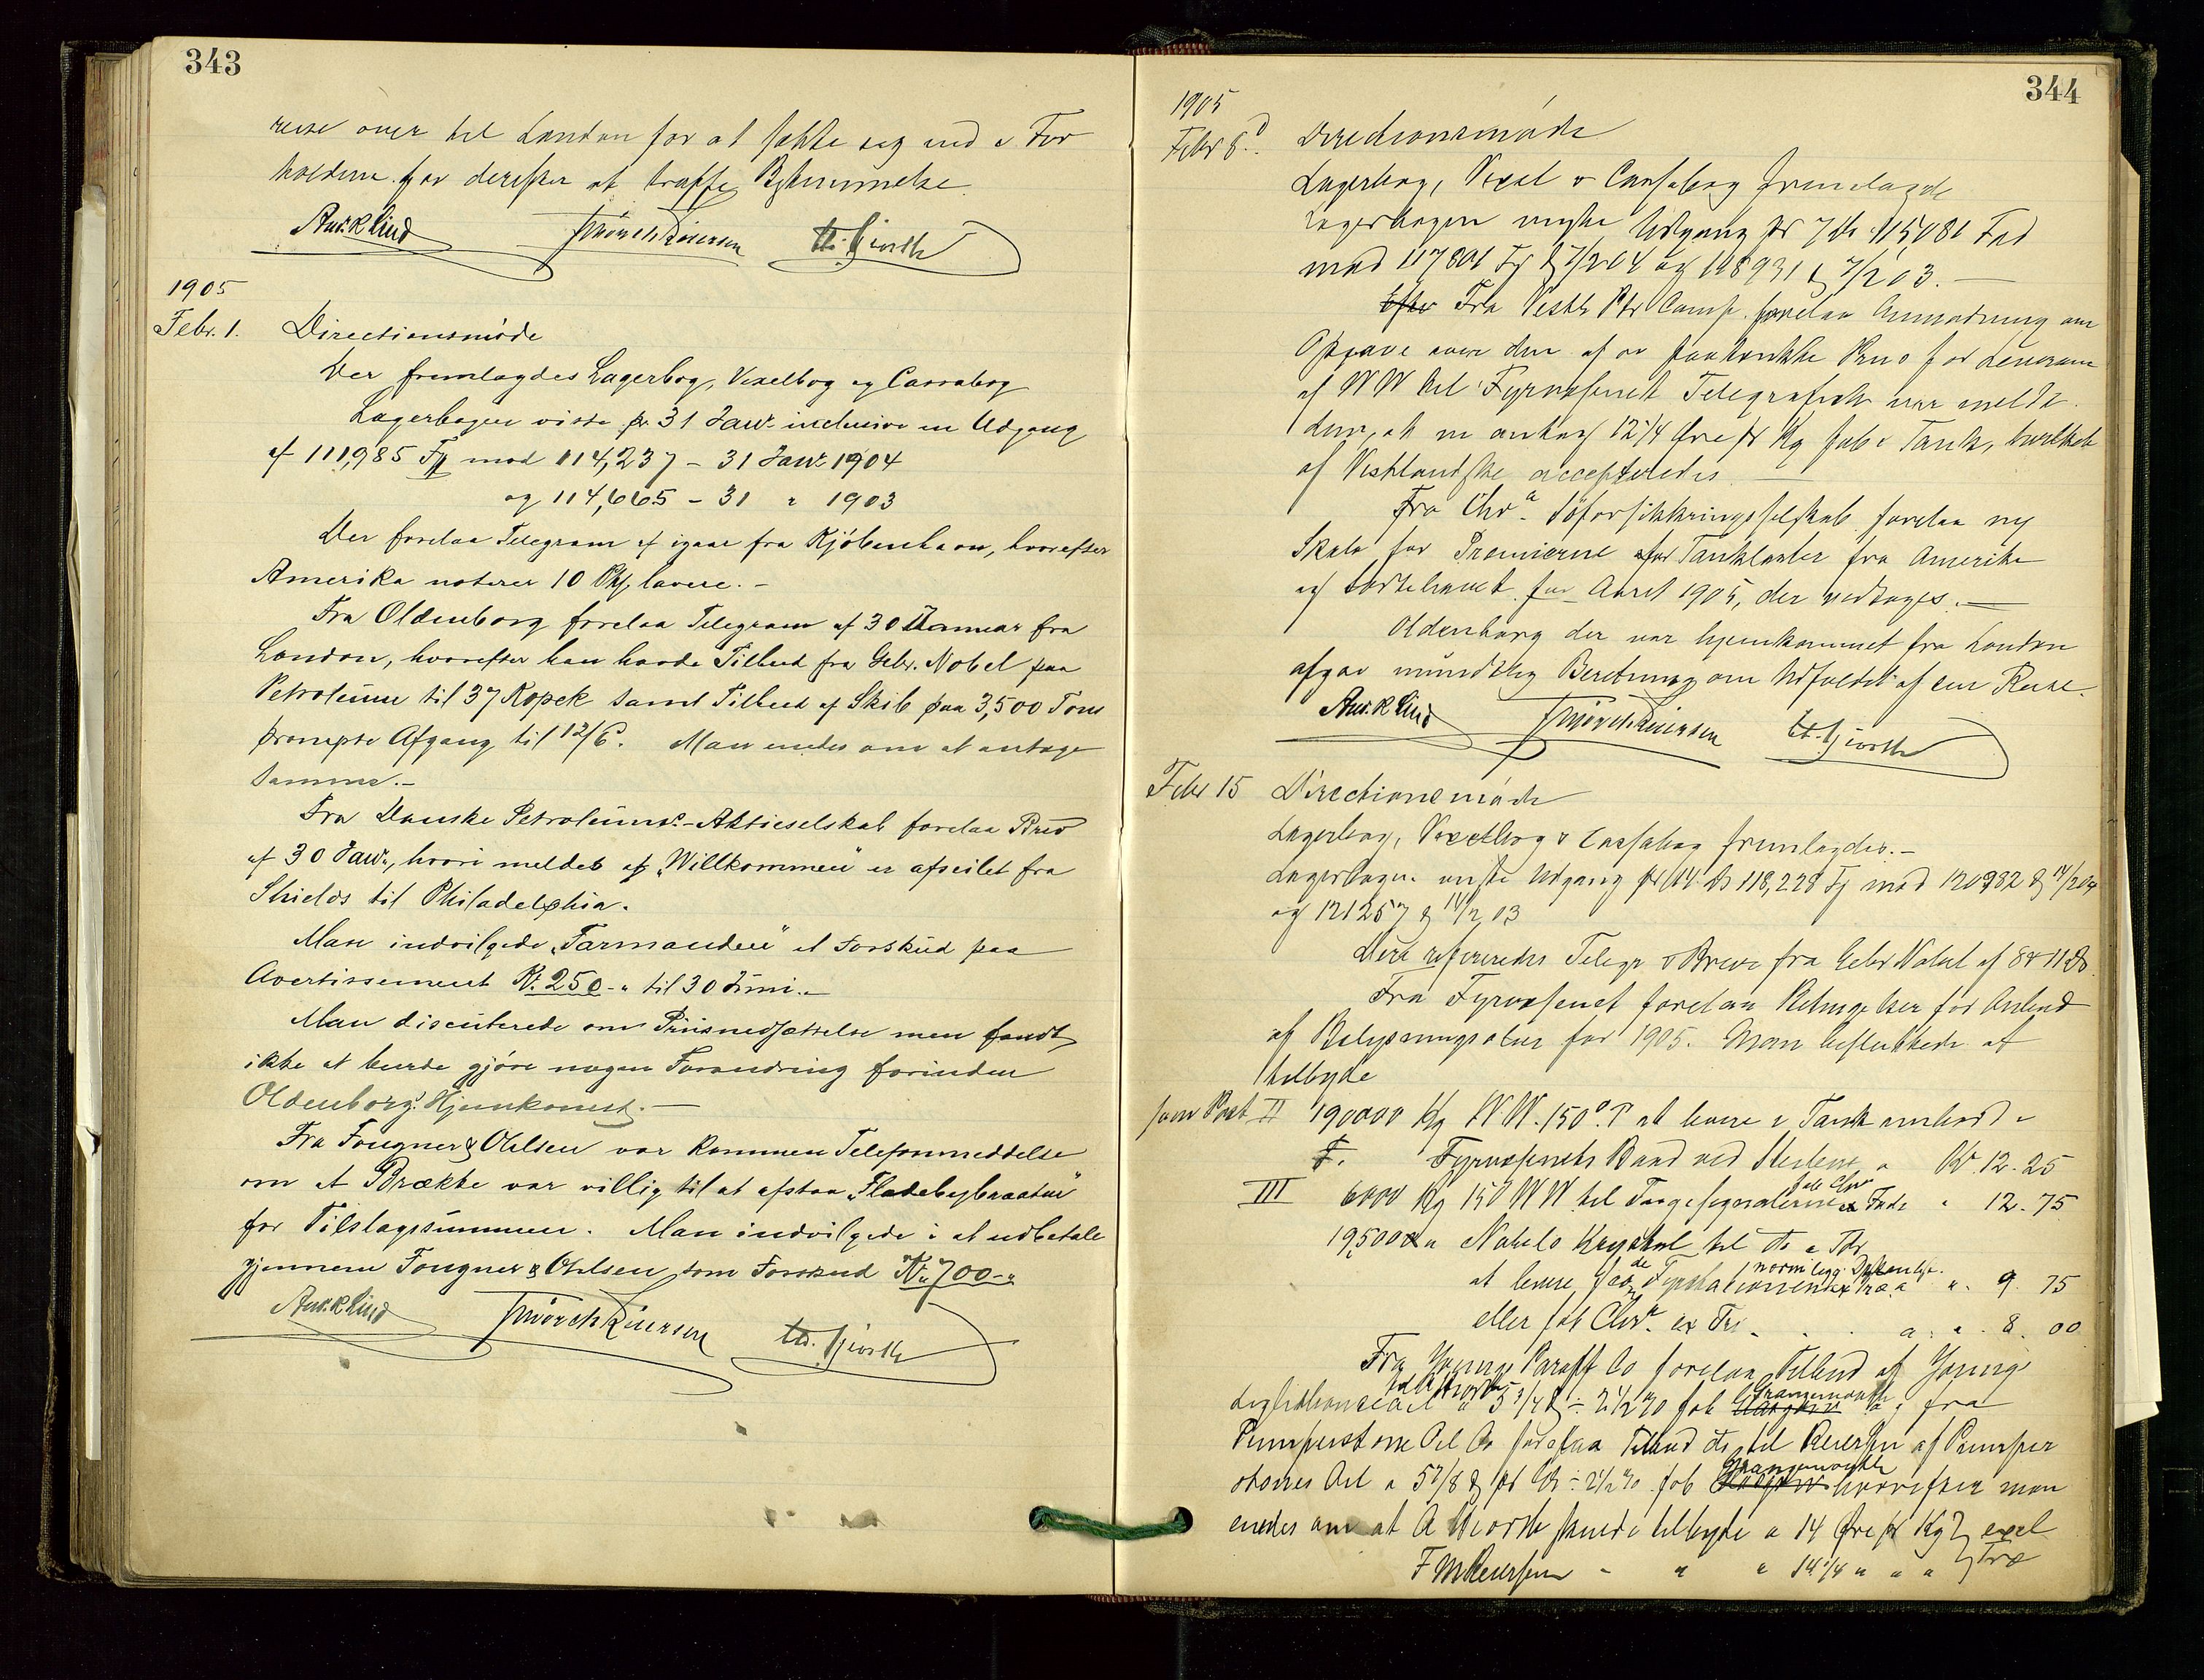 343
reise over til London for at sætte sig ind i For
holdene for derefter at træffe Bestemmelse.
Aug. R Lind F Mörch Reiersen Th. Hjorth
1905
Febr. 1. Directionsmöde
Der fremlagdes Lagerbog, Vexelbog og Cassabog
Lagerbogen viste pr 31 Janr. inclusive en Udgang
af 111,985 Fp mod 114,237 - 31 Janr. 1904
og 114,665 - 31 " 1903
Der forelaa Telegram af igaar fra Kjöbenhavn, hvorefter
Amerika noterer 10 Pkt lavere. -
Fra Oldenborg forelaa Telegram af 30 Januar fra
London, hvorefter han havde Tilbud fra Gebr. Nobel paa
Petroleum til 37 Kopek samt Tilbud af Skib paa 3,500 Tons
prompte Afgang til 12/6. Man enedes om at antage
samme. -
Fra Danske Petroleums-Aktieselskab forelaa Brev
af 30 Janr., hvori meldes at "Willkommen" er afseilet fra
Shields til Philadelphia.
Man indvilgede "Farmanden" et Forskud paa
Avertissement Kr. 250 - " til 30 Juni. -
Man discuterede om Prisnedsættelse men fandt
ikke at burde gjöre nogen Forandring forinden
Oldenborgs Hjemkomst. -
Fra Fougner & Ohlsen var kommen Telefonmeddelse
om at Brække var villig til at afstaa "Fladebybraaten"
for Tilslagssummen. Man indvilgede i at udbetale
gjennem Fougner & Ohlsen som Forskud Kr. 700 - "
Aug. R Lind F Mörch Reiersen Th. Hjorth
344
1905
Febr 8. Directionsmöde
Lagerbog, Vexel & Cassabog fremlagde
Lagerbogen viste Udgang pr 7 ds 115081 Fad
mod 117801 Fp 7/2 04 og 118931 7/2 03. -
Efter Fra Vestl. Ptr Comp. forelaa Anmodning om
Opgave over den af os paatænkte Pris for Leverance
af WW til Fyrvæsenet Telegrafisk var meldt
dem, at vi antog 12 1/4 Øre pr Kg fob i Tank, hvilket
af Vestlandske accepteredes -
Fra Chra. Söforsikkringsselskab forelaa ny
Skala for Præmierne for Tanklaster fra Amerika
og Sortehavet for Aaret 1905, der vedtoges. -
Oldenborg der var hjemkommet fra London
afgav mündtlig Beretning om Udfaldet af sin Reise.
Aug. R Lind F Mörch Reiersen Th. Hjorth
Febr 15 Directionsmöde
Lagerbog, Vexelbog & Cassabog fremlagdes. -
Lagerbogen viste Udgang pr 14 ds 118,228 Fp mod 120932 14/2 04
og 121257 14/2 03
Der refereredes Telegr & Breve fra Gebr Nobel af 8 & 11 ds.
Fra Fyrvæsenet forelaa Betingelser for Anbud
af Belysningsolier for 1905. Man besluttede at
tilbyde
som Post II 190000 Kg W.W. 150° T at levere i Tank ombord i
F. Fyrvæsenets Baad ved Stederne a Kr. 12.25
III 6000 Kg 150 WW til Taagesignalerne Fade fob Chra " 12.75
195000 " Nobels Krystal til ds a Tdr
at levere paa de Fyrstationer norm legg " 9.75
eller fob Chra. ex Træ " " 8.00
Fra Youngs Paraff Co forelaa Tilbud af Youngs
til A Hjorth a 5 3/4 ÷ 2 1/2 % fob Glasgow Grangemouth og fra
Pumpherston Oil Co forelaa Tilbud ds til Reiersen af Pumpher
stones Oil a 5 7/8 pr ÷ 2 1/2 % fob Glasgow Grangemouth hvorefter man
enedes om at A Hiorth skulde tilbyde a 14 Øre pr Kg excl
F M Reiersen " " " 14 1/4 " " " Træ